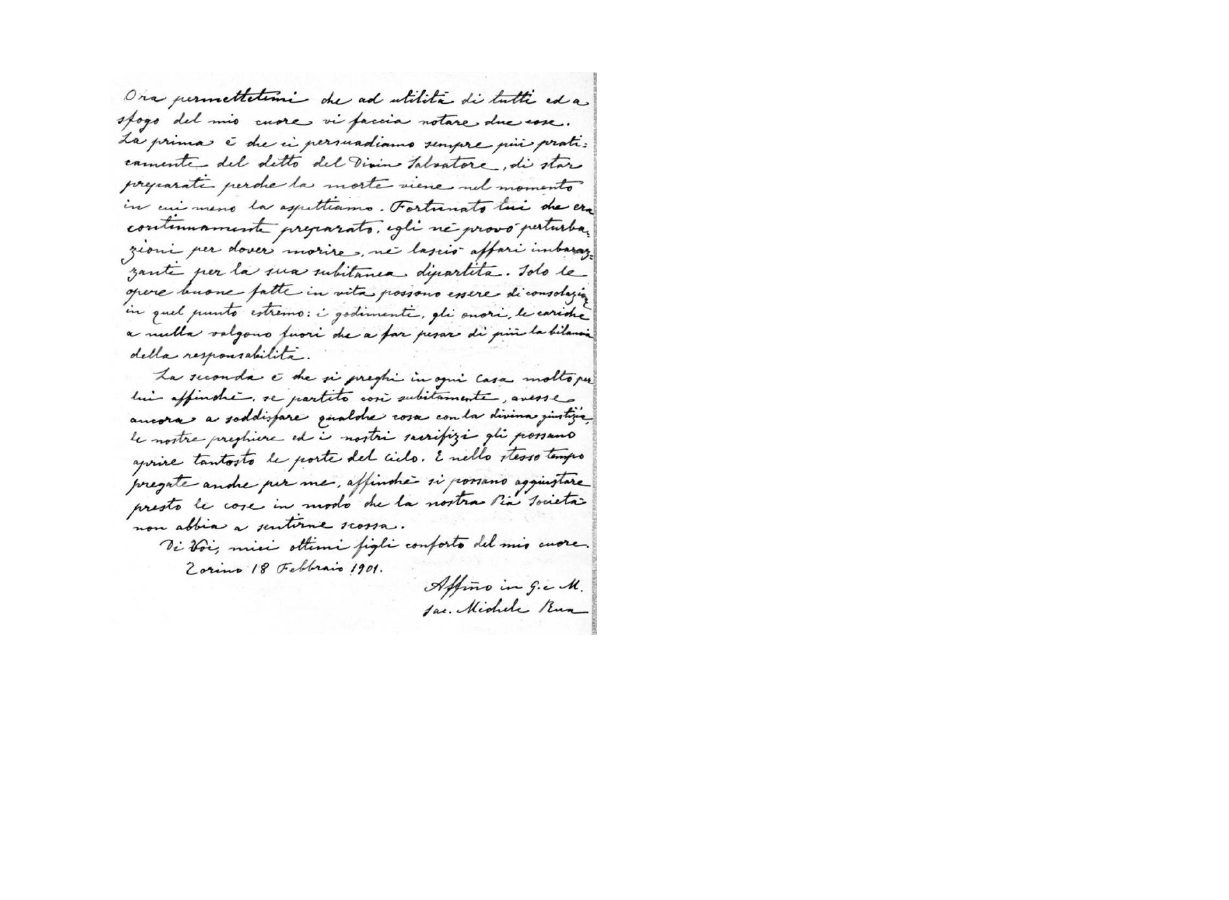 Ora permettetemi che ad utilità di tutti ed a
sfogo del mio cuore vi faccia notare due cose.
La prima è che ci persuadiamo sempre più prati:
camente del detto del Divin Salvatore, di star
preparati perche la morte viene nel momento
in cui meno la aspettiamo. Fortunato lui che era
continuamente preparato, egli nè provò perturba:
zioni per dover morire, nè lasciò affari imbaraz:
zanti per la sua subitanea dipartita. Solo le
opere buone fatte in vita possono essere di consolazione
in quel punto estremo: i godimenti, gli onori, le cariche
a nulla valgono fuori che a far pesar di più la bilancia
della responsabilità.
La seconda è che si preghi in ogni Casa molto per
lui affinchè, se partito così subitamente, avesse
ancora a soddisfare qualche cosa con la divina giustizia,
le nostre preghiere ed i nostri sacrifizi gli possano
aprire tantosto le porte del Cielo. E nello stesso tempo
pregate anche per me, affinchè si possano aggiustare
presto le cose in modo che la nostra Pia Società
non abbia a sentirne scossa.
Di Voi, miei ottimi figli conforto del mio cuore.
Torino 18 Febbraio 1901.
Affmo in G. e M.
Sac. Michele Rua